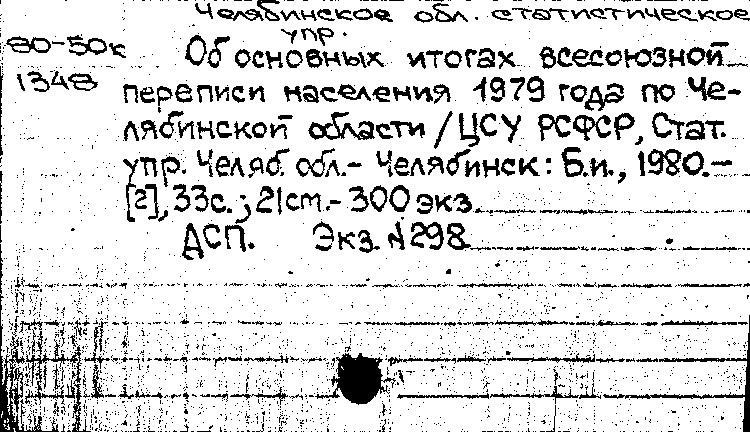 Челябинское обл. статистическое
упр.
80-50к Об основных итогах всесоюзной
1348 переписи населения 1979 года по Че-
лябинской области / ЦСУ РСФСР, Стат.
упр. Челяб. обл.- Челябинск: Б.и., 1980.-
[2], 33с.; 21см.- 300 экз.
ДСП. Экз. №298